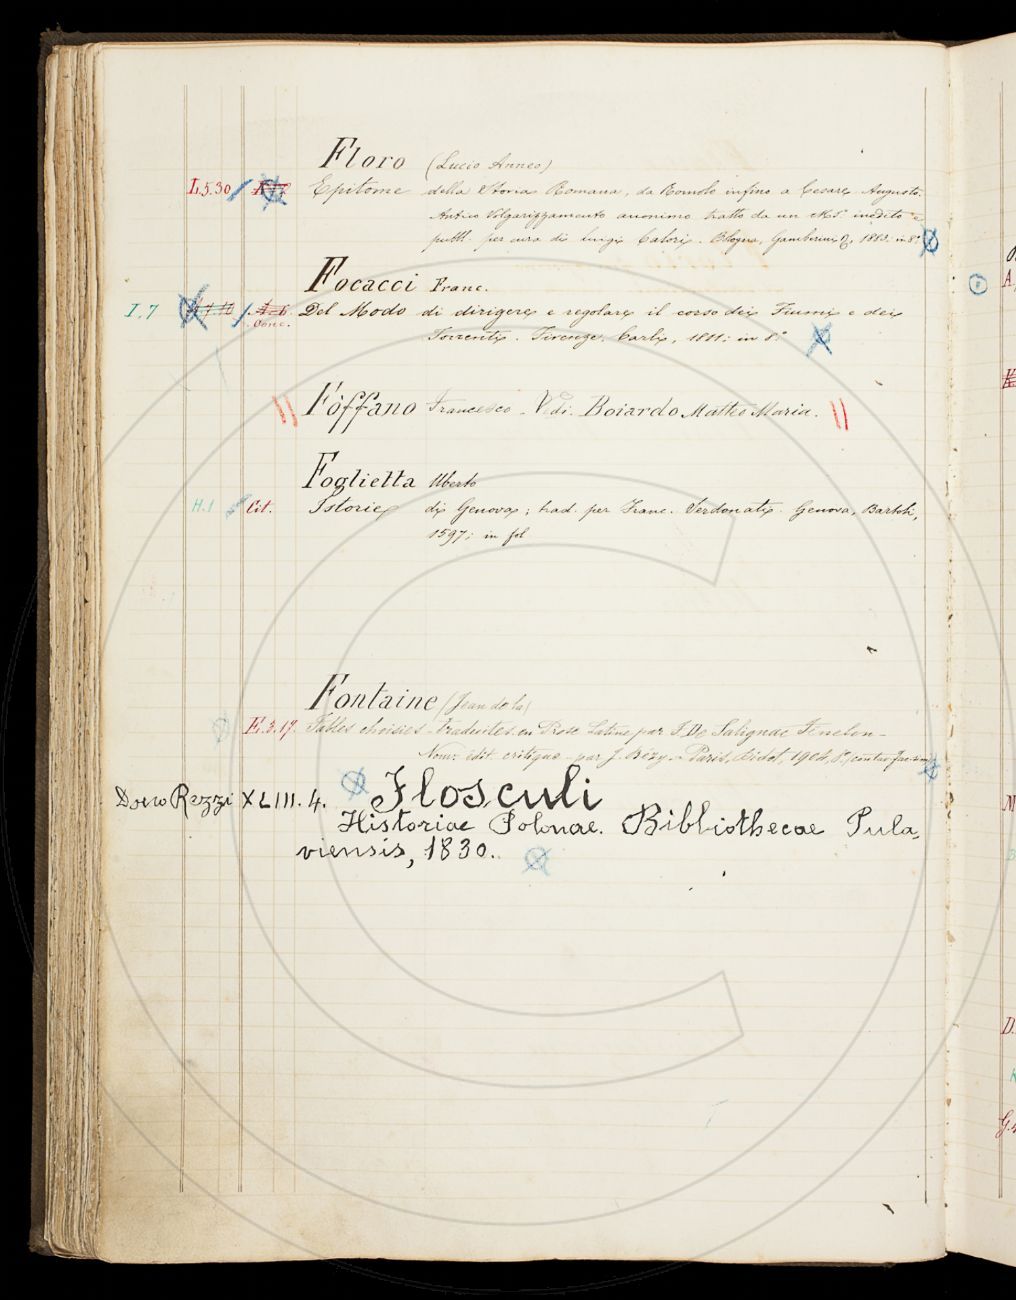 Floro (Lucio Anneo)
L.5.30 Epitome della Storia Romana, da Romolo infino a Cesare Augusto.
Antico Volgarizzamento anonimo tratto da un MS. inedito e
pubbl. per cura di Luigi Calori. Bologna, Gamberini, 1883; in 8°
Focacci Franc.
I.7 A.6. Del Modo di dirigere e regolare il corso dei Fiumi e dei
Conc.
Torrenti. Firenze, Carli, 1811; in 8°
Fòffano Francesco - Vedi. Boiardo Matteo Maria.
Foglietta Uberto
H.1 Cit. Istorie di Genova; trad. per Franc. Serdonati. Genova, Bartoli,
1597; in fol
Fontaine (Jean de la)
E.3.17. Fables choisies - Traduites en Prose Latine par F. De Salignac Fenelon -
Nouv. édit. critique par J. Bézy. - Paris, Didot, 1904, 8°,
Dono Rezzi XLIII. 4. Flosculi
Historiae Polonae. Bibliothecae Pula-
viensis, 1830.